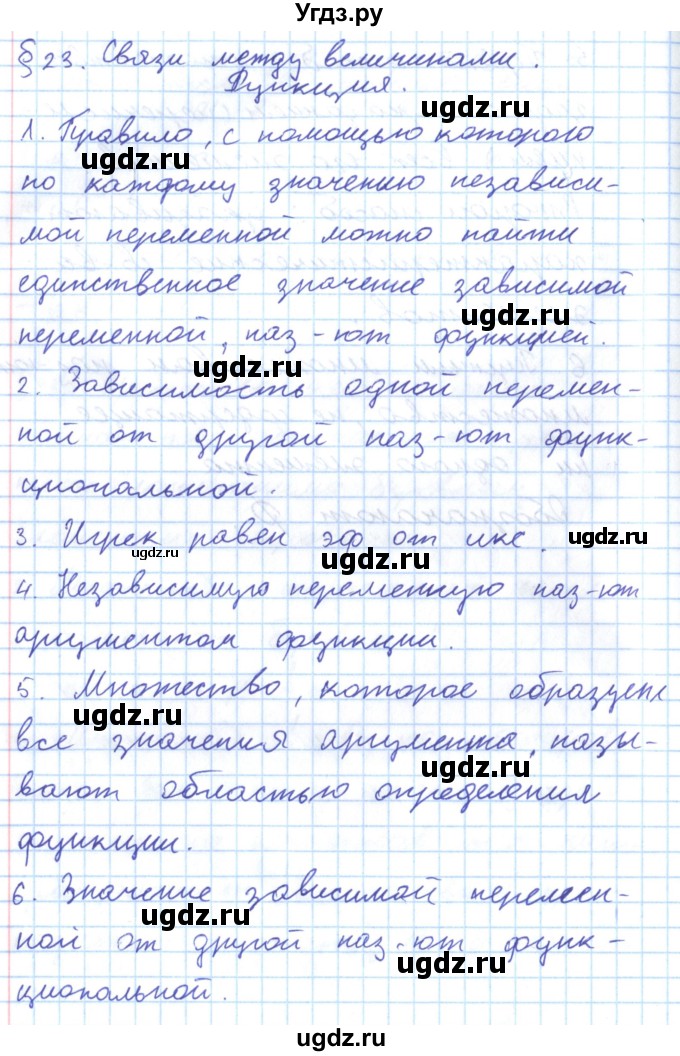 Угдз.ру
§ 23. Связи между величинами.
Функция.
ugdz.ru
1. Правило, с помощью которого
ugdz.ru
по каждому значению независи-
ugdz.ru
мой переменной можно найти
единственное значение зависимой
ugdz.ru
переменной, наз-ют функцией.
ugdz.ru
2. Зависимость одной перемен-
ной от другой наз-ют функ-
циональной.
3. Игрек равен эф от икс.
ugdz.ru
ugdz.ru
ugdz.ru
4. Независимую переменную наз-ют
аргументом функции.
5. Множество, которое образуют
ugdz.ru
все значения аргумента, назы-
ugdz.ru
вают областью определения
функции.
6. Значение зависимой перемен-
ugdz.ru
ной от другой наз-ют функ-
ugdz.ru
циональной.
ugdz.ru